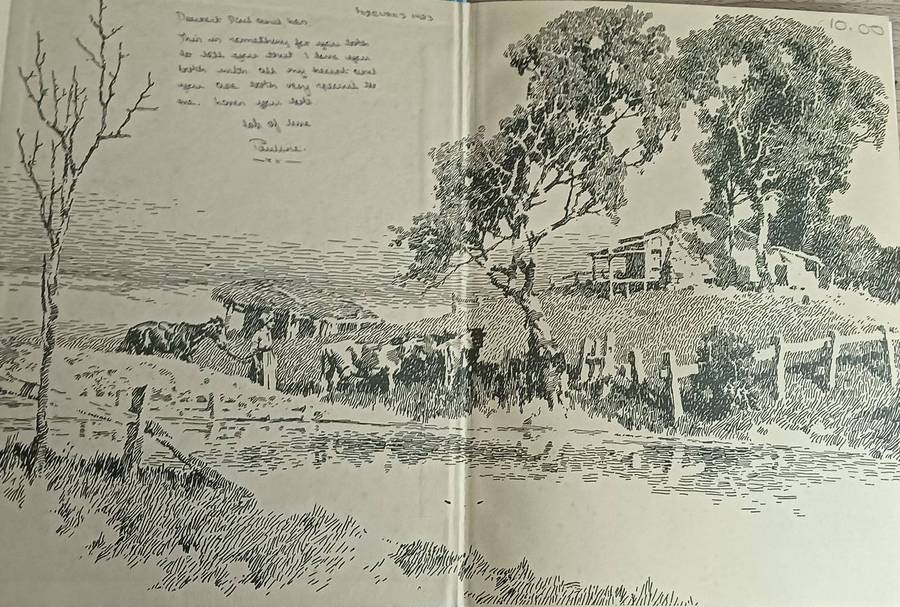 Dearest Paul and
This is something for you both
to tell you that I love you
both with all my heart and
you are both very special to
me. both
lots of love
Pauline.
xx
10.00